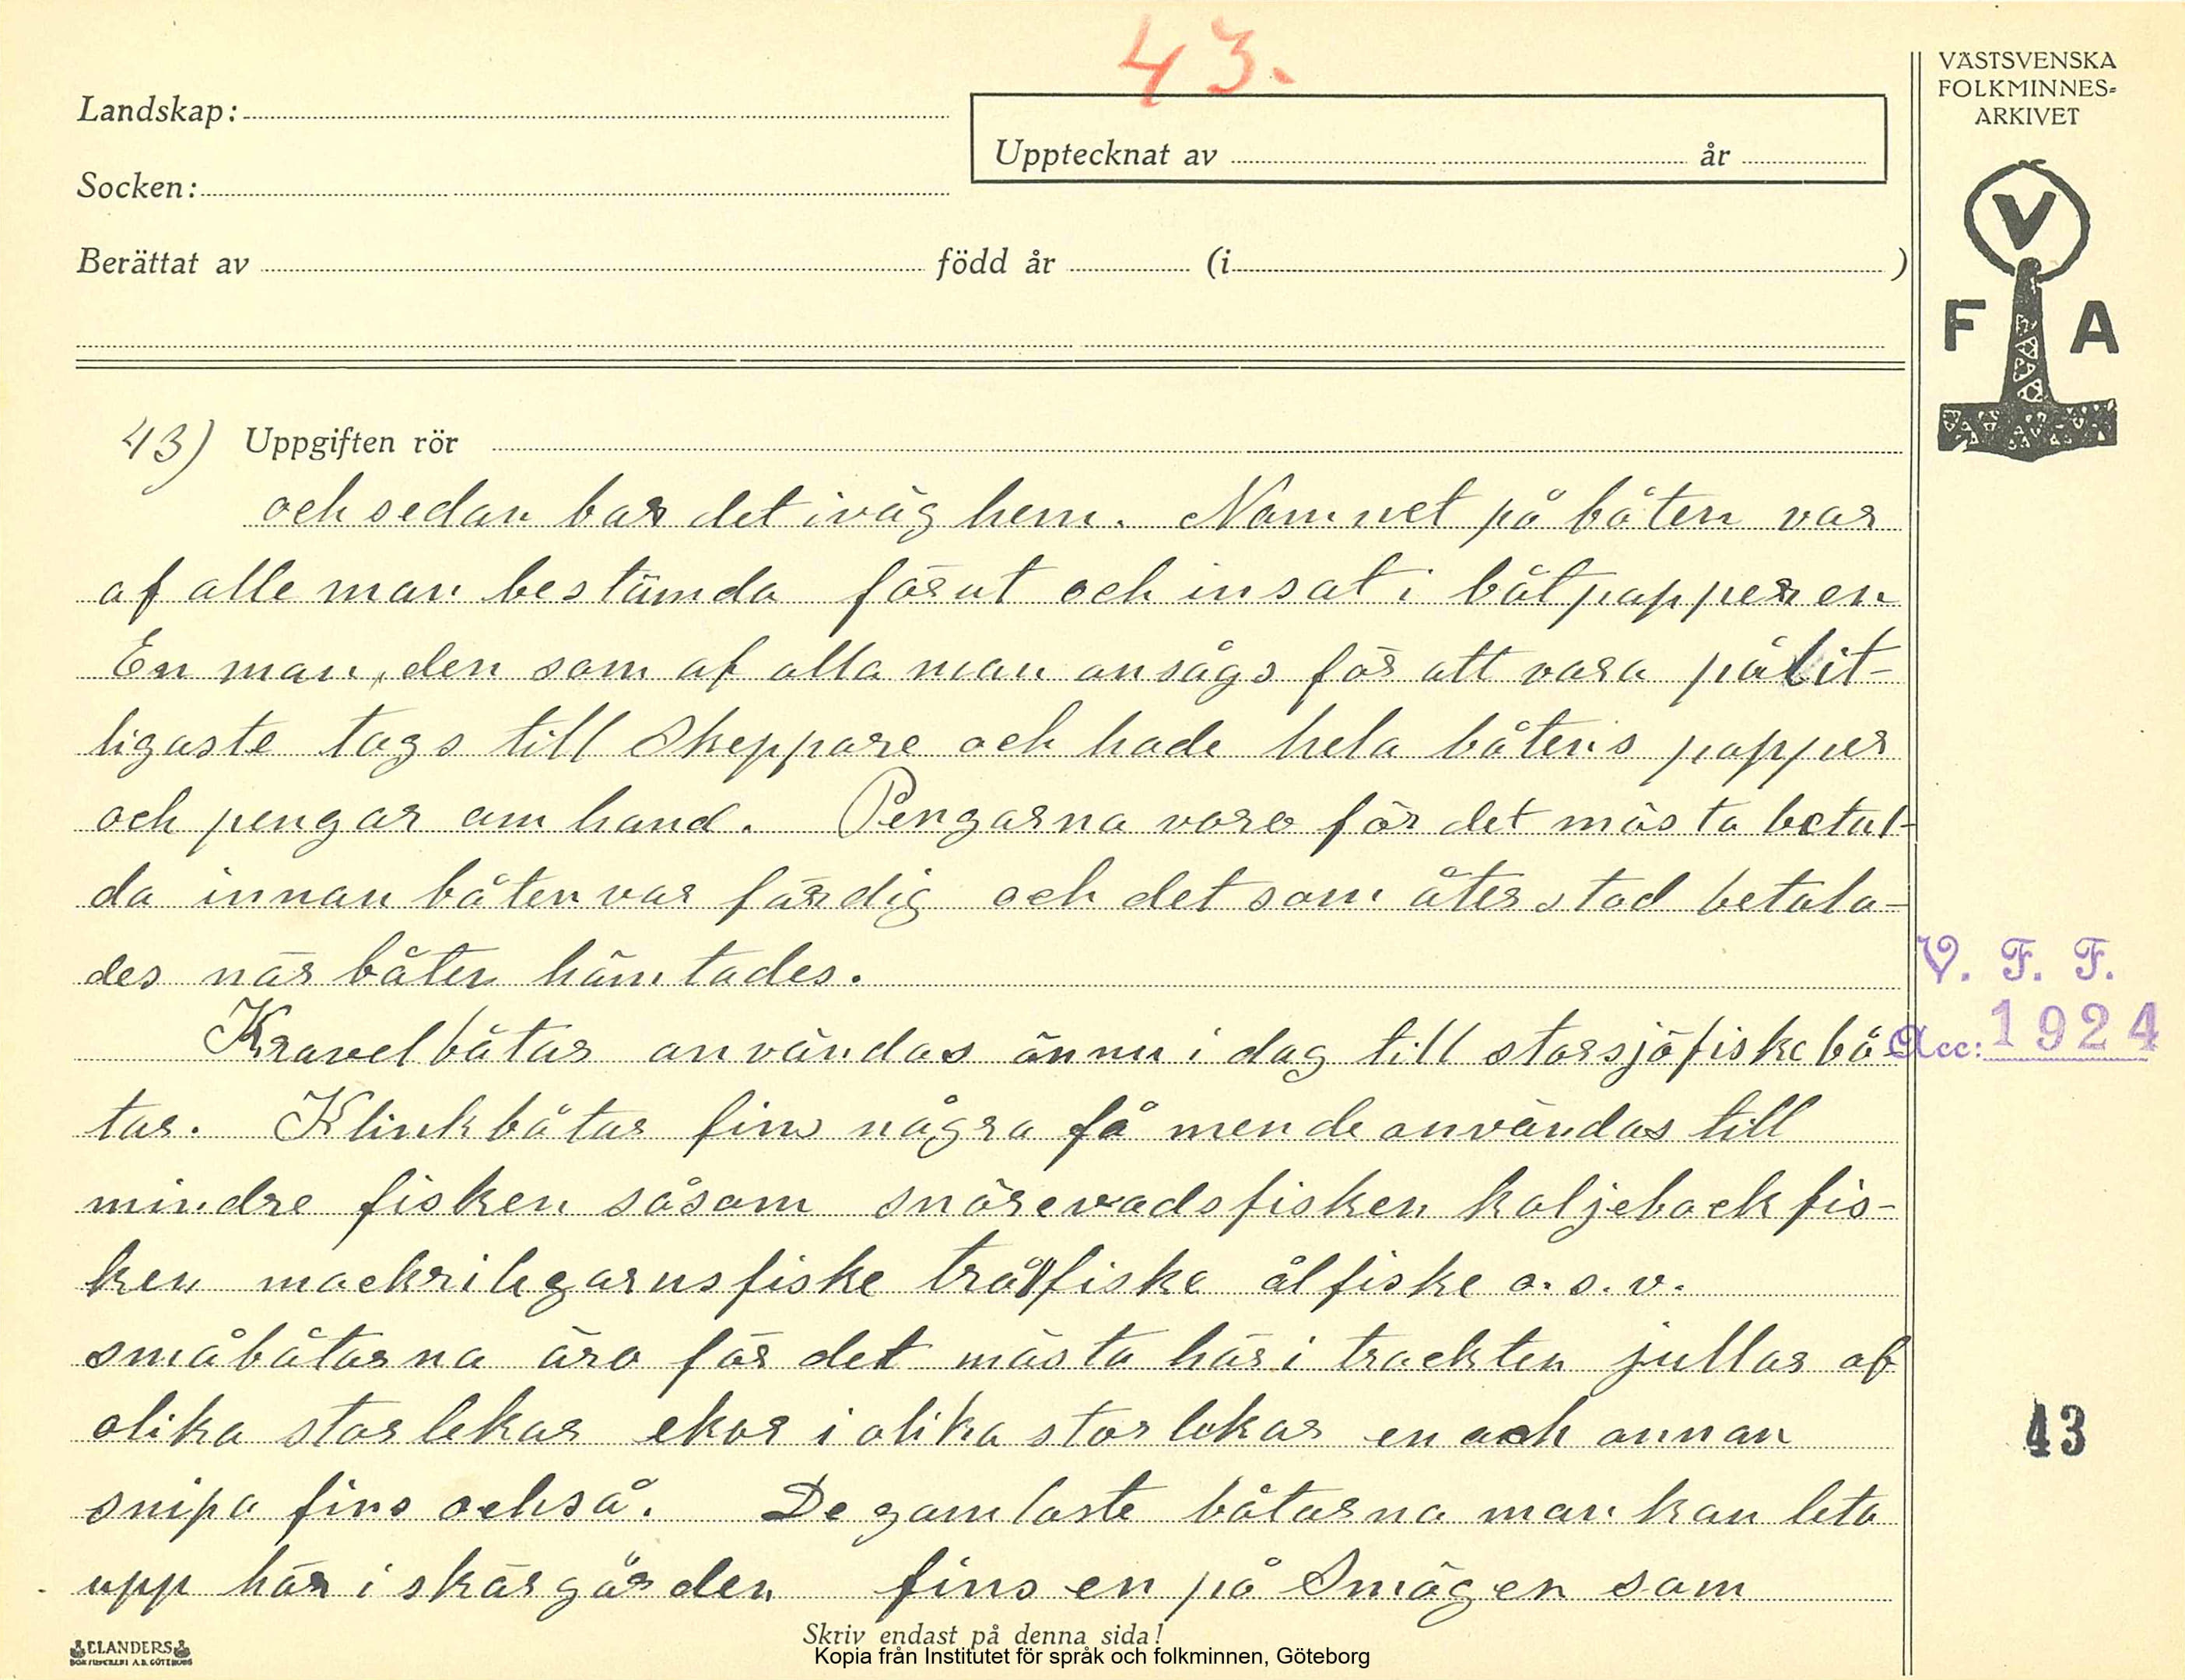 43.
VÄSTSVENSKA
FOLKMINNES-
ARKIVET
Landskap:
Upptecknat av år
Socken:
Berättat av född år (i )
V
F A
43) Uppgiften rör
och sedan bar det iväg hem. Namnet på båten var
af alle man bestämda förut och insat i båtpapperen
En man, den som af alla man ansågs för att vara pålit-
ligaste togs till Skeppare och hade hela båtens papper
och pengar om hand. Pengarna voro för det mästa betal-
da innan båten var färdig och det som återstod betala-
des när båten hämtades.
Kravelbåtar användas ännu i dag till storsjöfiskebå-
tar. Klinkbåtar fins några få men de användas till
mindre fisken såsom snörevadsfisken koljebackfis-
ken mackrillgarnsfiske trålfiske ålfiske o. s. v.
småbåtarna äro för det mästa här i trackten jullar af
olika storlekar ekor i olika storlekar en och annan
snipa fins också. De gamlaste båtarna man kan leta
upp här i skärgården fins en på Smögen som
V. F. F.
Acc: 1924
43
Skriv endast på denna sida!
ELANDERS
BOKTRYCKERI A.B. GÖTEBORG
Kopia från Institutet för språk och folkminnen, Göteborg